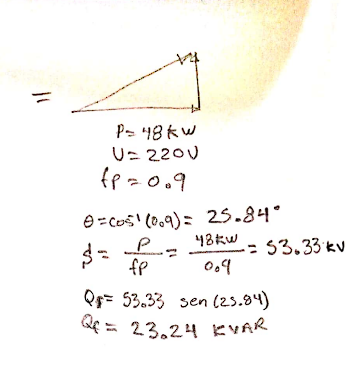 =
P= 48 kW
U= 220V
fp = 0.9
θ = cos⁻¹ (0.9) = 25.84°
$ = P/fp = 48kW/0.9 = 53.33 kV
Qf= 53.33 sen (25.84)
Qf = 23.24 KVAR